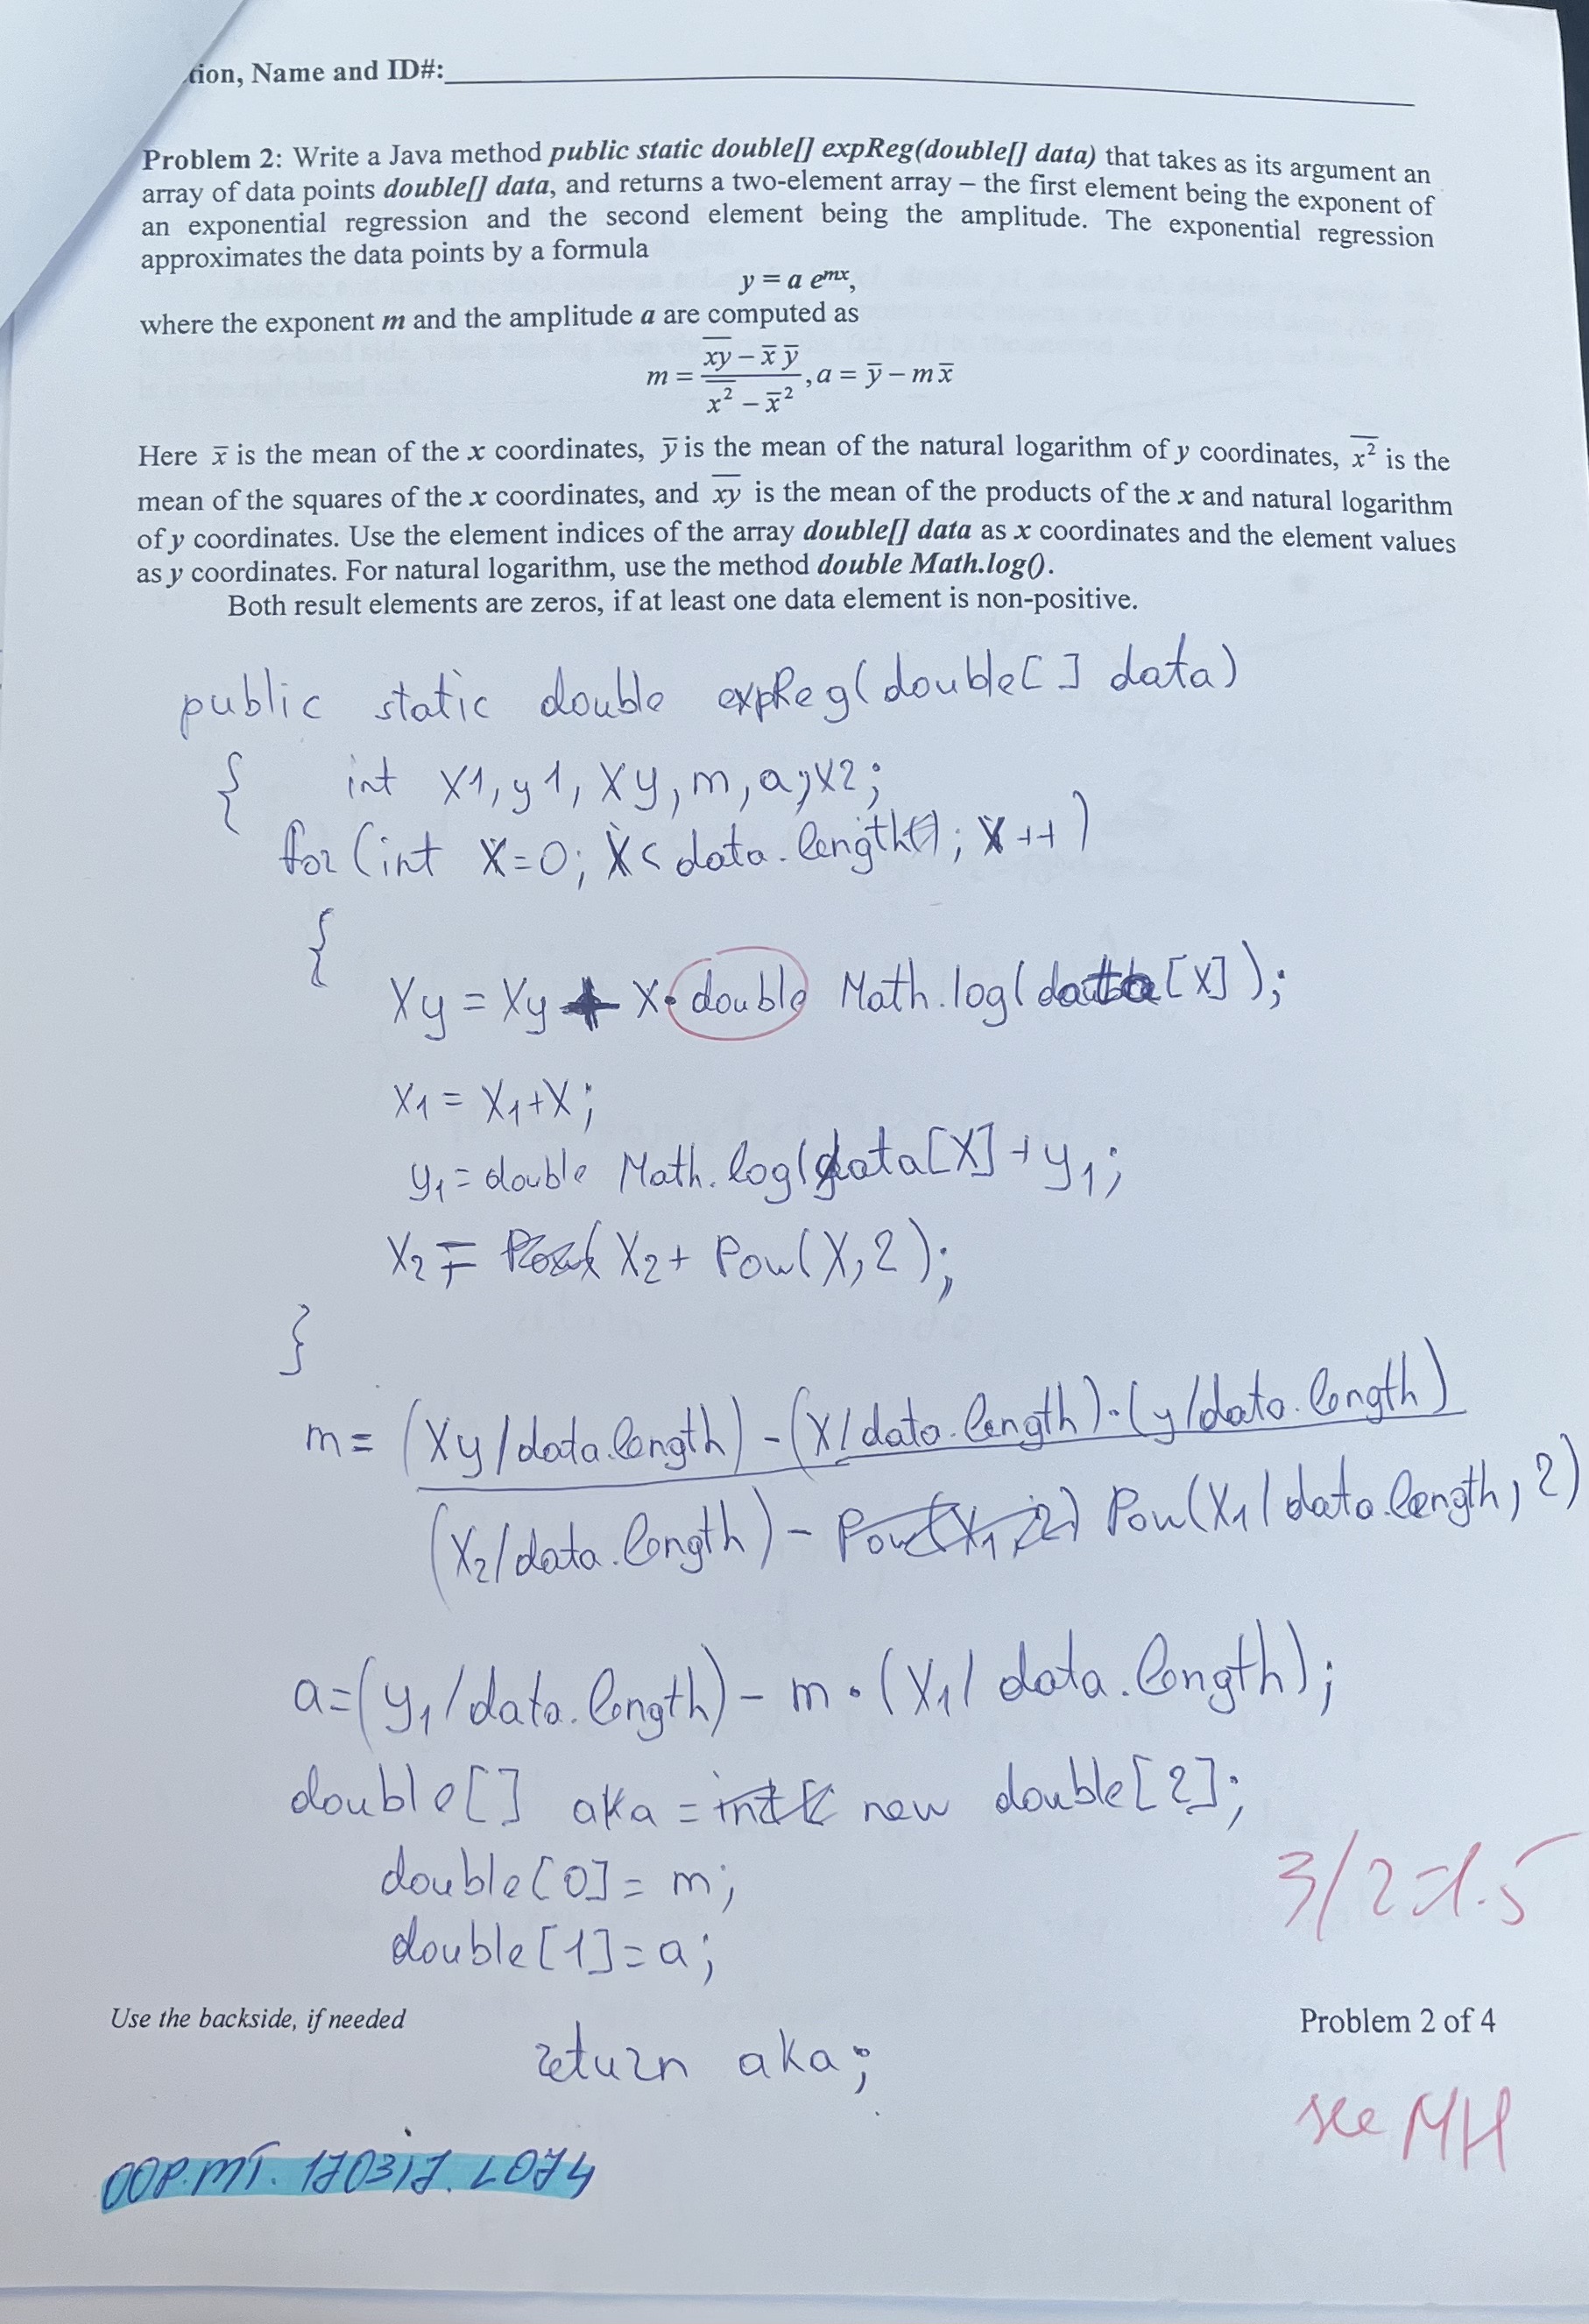 tion, Name and ID#:
Problem 2: Write a Java method public static double[] expReg(double[] data) that takes as its argument an
array of data points double[] data, and returns a two-element array – the first element being the exponent of
an exponential regression and the second element being the amplitude. The exponential regression
approximates the data points by a formula
y = a e^{mx},
where the exponent m and the amplitude a are computed as
m = \frac{\overline{xy} - \bar{x}\,\bar{y}}{\overline{x^2} - \bar{x}^2}, a = \bar{y} - m\bar{x}
Here x̄ is the mean of the x coordinates, ȳ is the mean of the natural logarithm of y coordinates, \overline{x^2} is the
mean of the squares of the x coordinates, and \overline{xy} is the mean of the products of the x and natural logarithm
of y coordinates. Use the element indices of the array double[] data as x coordinates and the element values
as y coordinates. For natural logarithm, use the method double Math.log().
Both result elements are zeros, if at least one data element is non-positive.
public static double expReg(double[] data)
{ int x1, y1, xy, m, a, x2;
for (int x=0; x< data.length; x++)
{
xy = xy + x· double Math.log(data[x]);
x1 = x1+x;
y1 = double Math.log(data[x]+y1;
x2 = x2+ Pow(x,2);
}
m= (xy/data.length) - (x/data.length)·(y/data.length)
(x2/data.length) - Pow(x1/data.length, 2)
a=(y1/data.length) - m·(x1/data.length);
double[] aka = new double[2];
double[0]= m;
double[1]=a;
3/2=1.5
Use the backside, if needed
Problem 2 of 4
return aka;
see MH
OOP.MT.170317.L074